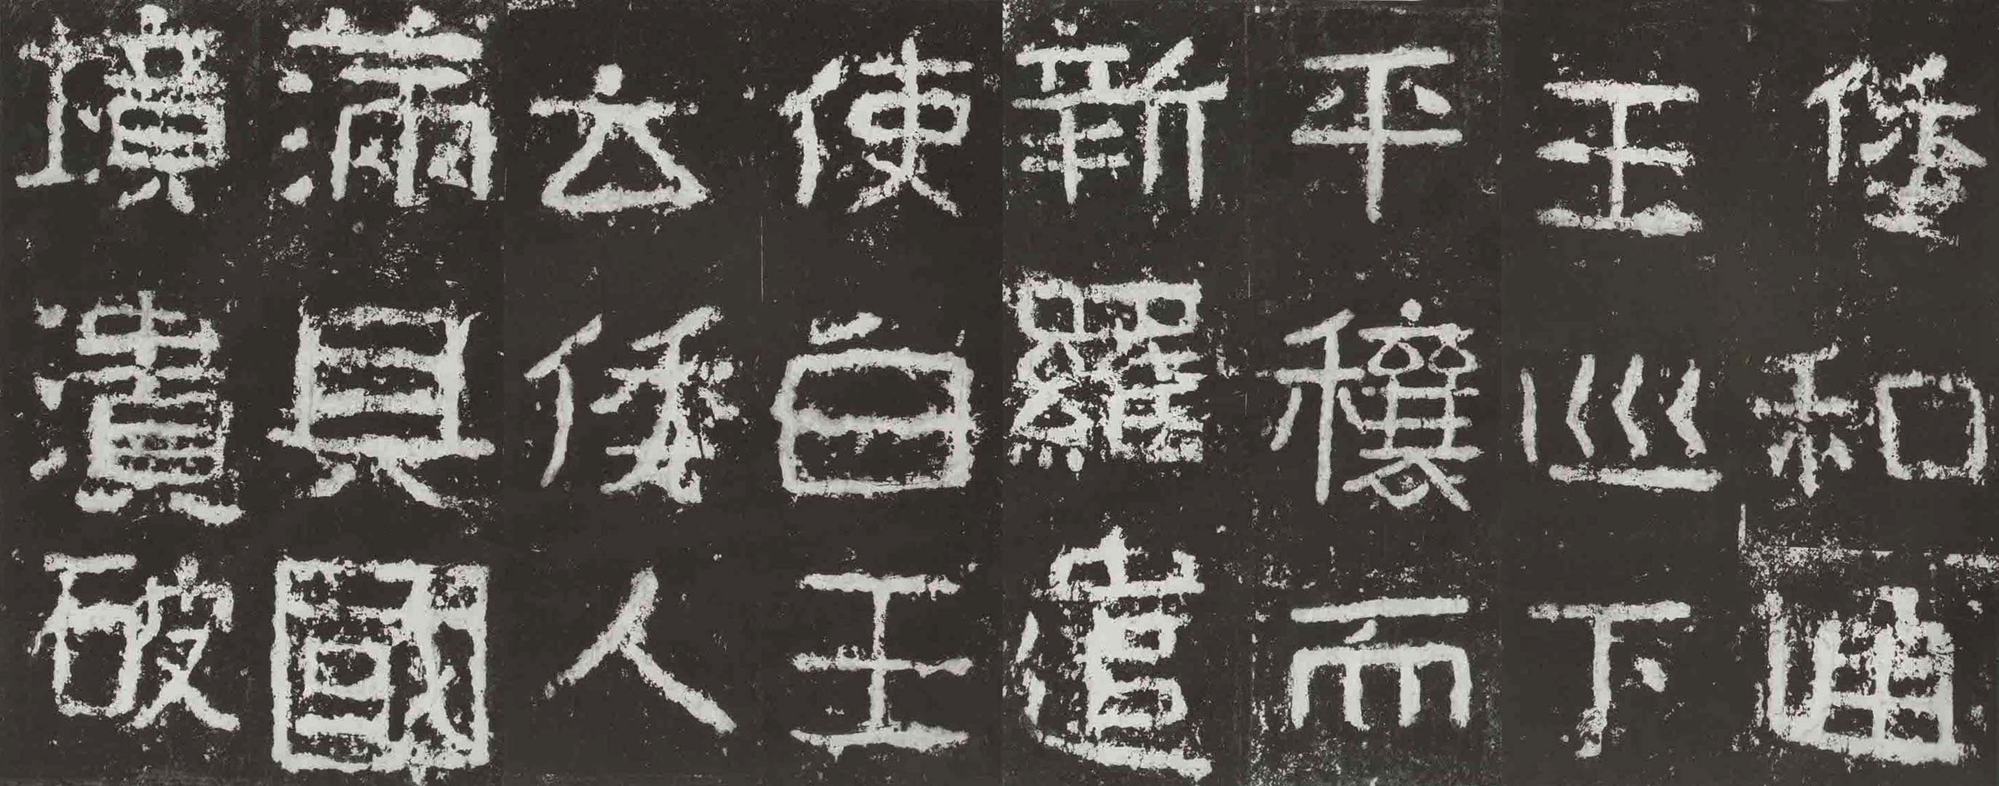 倭和通
王巡下
平穰而
新羅遣
使白王
云倭人
滿其國
境潰破